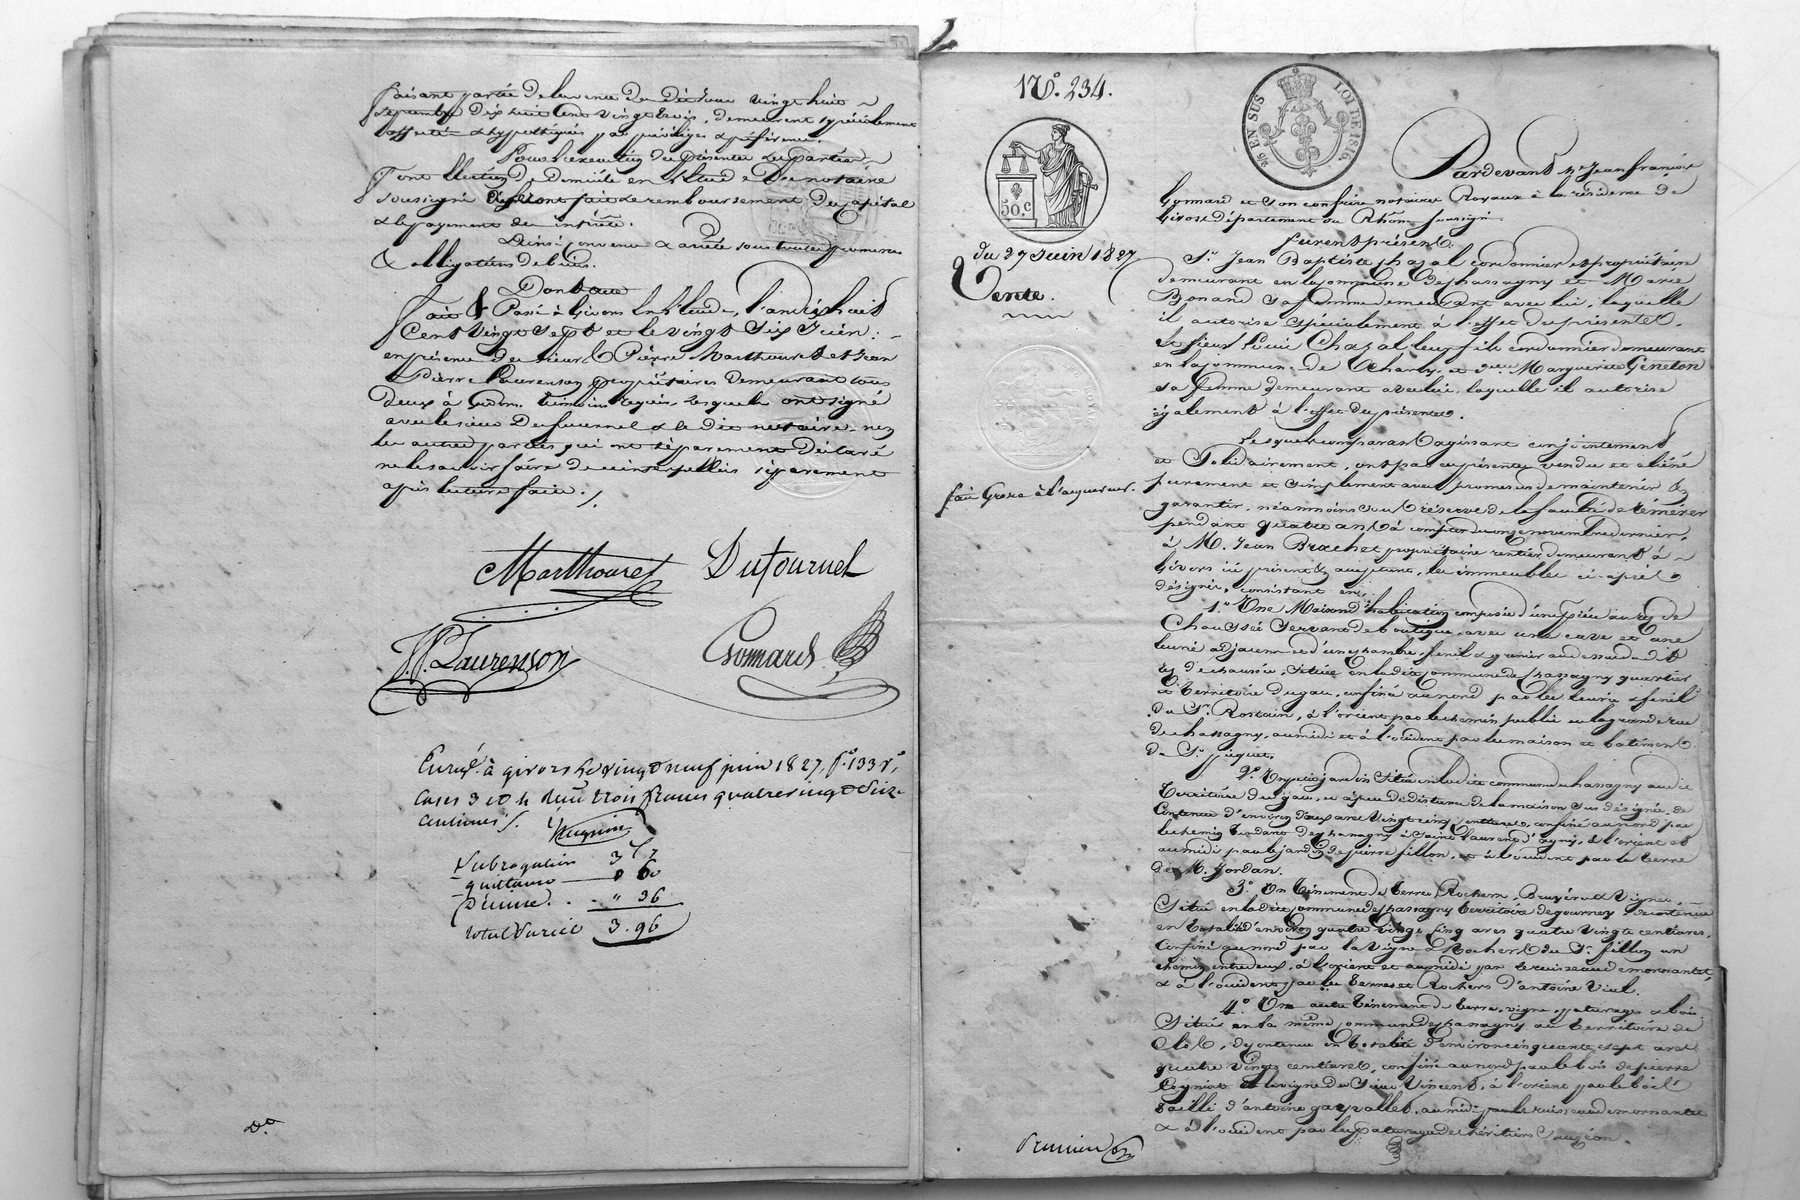 faisant partie de la vente du dit jour vingt huit
septembre dix huit cent vingt trois, demeurent spécialement
affectés & hypothéqués par privilège & préférence.
Pour l'exécution des présentes les parties
font élection de domicile en l'étude du notaire
soussigné où seront fait le remboursement du capital
& le payement des intérêts.
Ainsi convenu & arrêté sous toutes promesses
& obligations de biens.
Dont acte
fait & Passé à Givors en l'étude, l'an dix huit
Cent vingt sept et le vingt six juin :
en présence des sieurs Pierre Marthouret et Jean
Pierre Laurenson propriétaires demeurant tous
deux à témoins requis, lesquels ont signé
avec le sieur Dufournel & le dit notaire, non
les autres parties qui ont séparément déclaré
ne le savoir faire de ce interpellés séparément
après lecture faite ./.
Marthouret Dufournel
J.P. Laurenson Gonnard
Enreg. à givors le vingt neuf juin 1827, f° 133 r°,
cases 3 et 4 reçu trois francs quatre vingt seize
centimes ./.
Subrogation 3
quittance
Décime . . " 36
total Pareil 3.96
N°. 234.
25 EN SUS LOI DE 1816.
50 c
du 27 Juin 1827
Vente.
fait Grosse à l'acquéreur.
Pardevant Me Jean françois
Gonnard et son confrère notaires Royaux à la résidence de
Givors département du Rhône soussignés
furent présents
Sr. Jean Baptiste Chazal cordonnier et propriétaire
demeurant en la commune de Chassagny et Marie
Bonand sa femme demeurant avec lui, laquelle
il autorise spécialement à l'effet des présentes.
Et sieur Louis Chazal leur fils cordonnier demeurant
en la commune de Charly, et dame Marguerite Geneton
sa femme demeurant avec lui, laquelle il autorise
également à l'effet des présentes.
Lesquels comparants agissant conjointement
et Solidairement, ont par ces présentes vendu et aliéné
purement et simplement avec promesses de maintenir &
garantir, néanmoins sous réserve de la faculté de réméré
pendant quatre ans à compter du onze novembre dernier,
à M. Jean Brachet propriétaire rentier demeurant à
Givors ici présent & acceptant, les immeubles ci-après
désignés, consistant en,
1.° Une Maison d'habitation composée d'une pièce au rez de
Chaussée servant de boutique, avec une cave et une
écurie adjacente et d'une chambre, fenil & grenier au dessus du dit
rez de chaussée, située en la dite commune de Chassagny quartier
et territoire du gau, confiné au nord par les écurie & fenil
du Sr. Rostain, à l'orient par le chemin public ou la grande rue
de chassagny, au midi et à l'occident par les maison et bâtiment
de Sr. piquet,
2.° Un petit jardin situé en la dite commune de chassagny au dit
territoire du gau, et à peu de distance de la maison sus désignée, de
contenue d'environ deux ares vingt cinq centiares, confiné au nord par
le chemin tendant de chassagny à Saint Laurent d'agny, à l'orient et
au midi par le jardin de pierre fillon, et à l'occident par la terre
de M. Jordan.
3.° Un ténement de terres, Rochers, Bruyères & Vignes,
Situé en la dite commune de chassagny territoire de gournay de contenue
en totalité d'environ quatre vingt cinq ares quatre vingts centiares,
confiné au nord par la vigne & Rochers du Sr. fillon un
chemin entre deux, à l'orient et au midi par le ruisseau de mornantet,
& à l'occident par les terres et Rochers d'antoine Vial.
4.° Un autre ténement de terre, vigne, paturages & bois,
Situé en la même commune de chassagny au territoire de
de contenue en totalité d'environ cinquante sept ares
quatre vingts centiares, confiné au nord par le bois de pierre
et la vigne du sieur Vincent, à l'orient par le bois
taillis d'antoine gayvallet, au midi par le ruisseau de mornantet
& à l'occident par les paturages des héritiers
premier